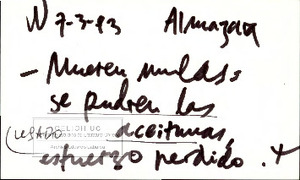 N 7-3-93 Almazara
- Mueren mulas,
se pudren las
(legado aceitunas,
esfuerzo perdido. +
CELICH UC